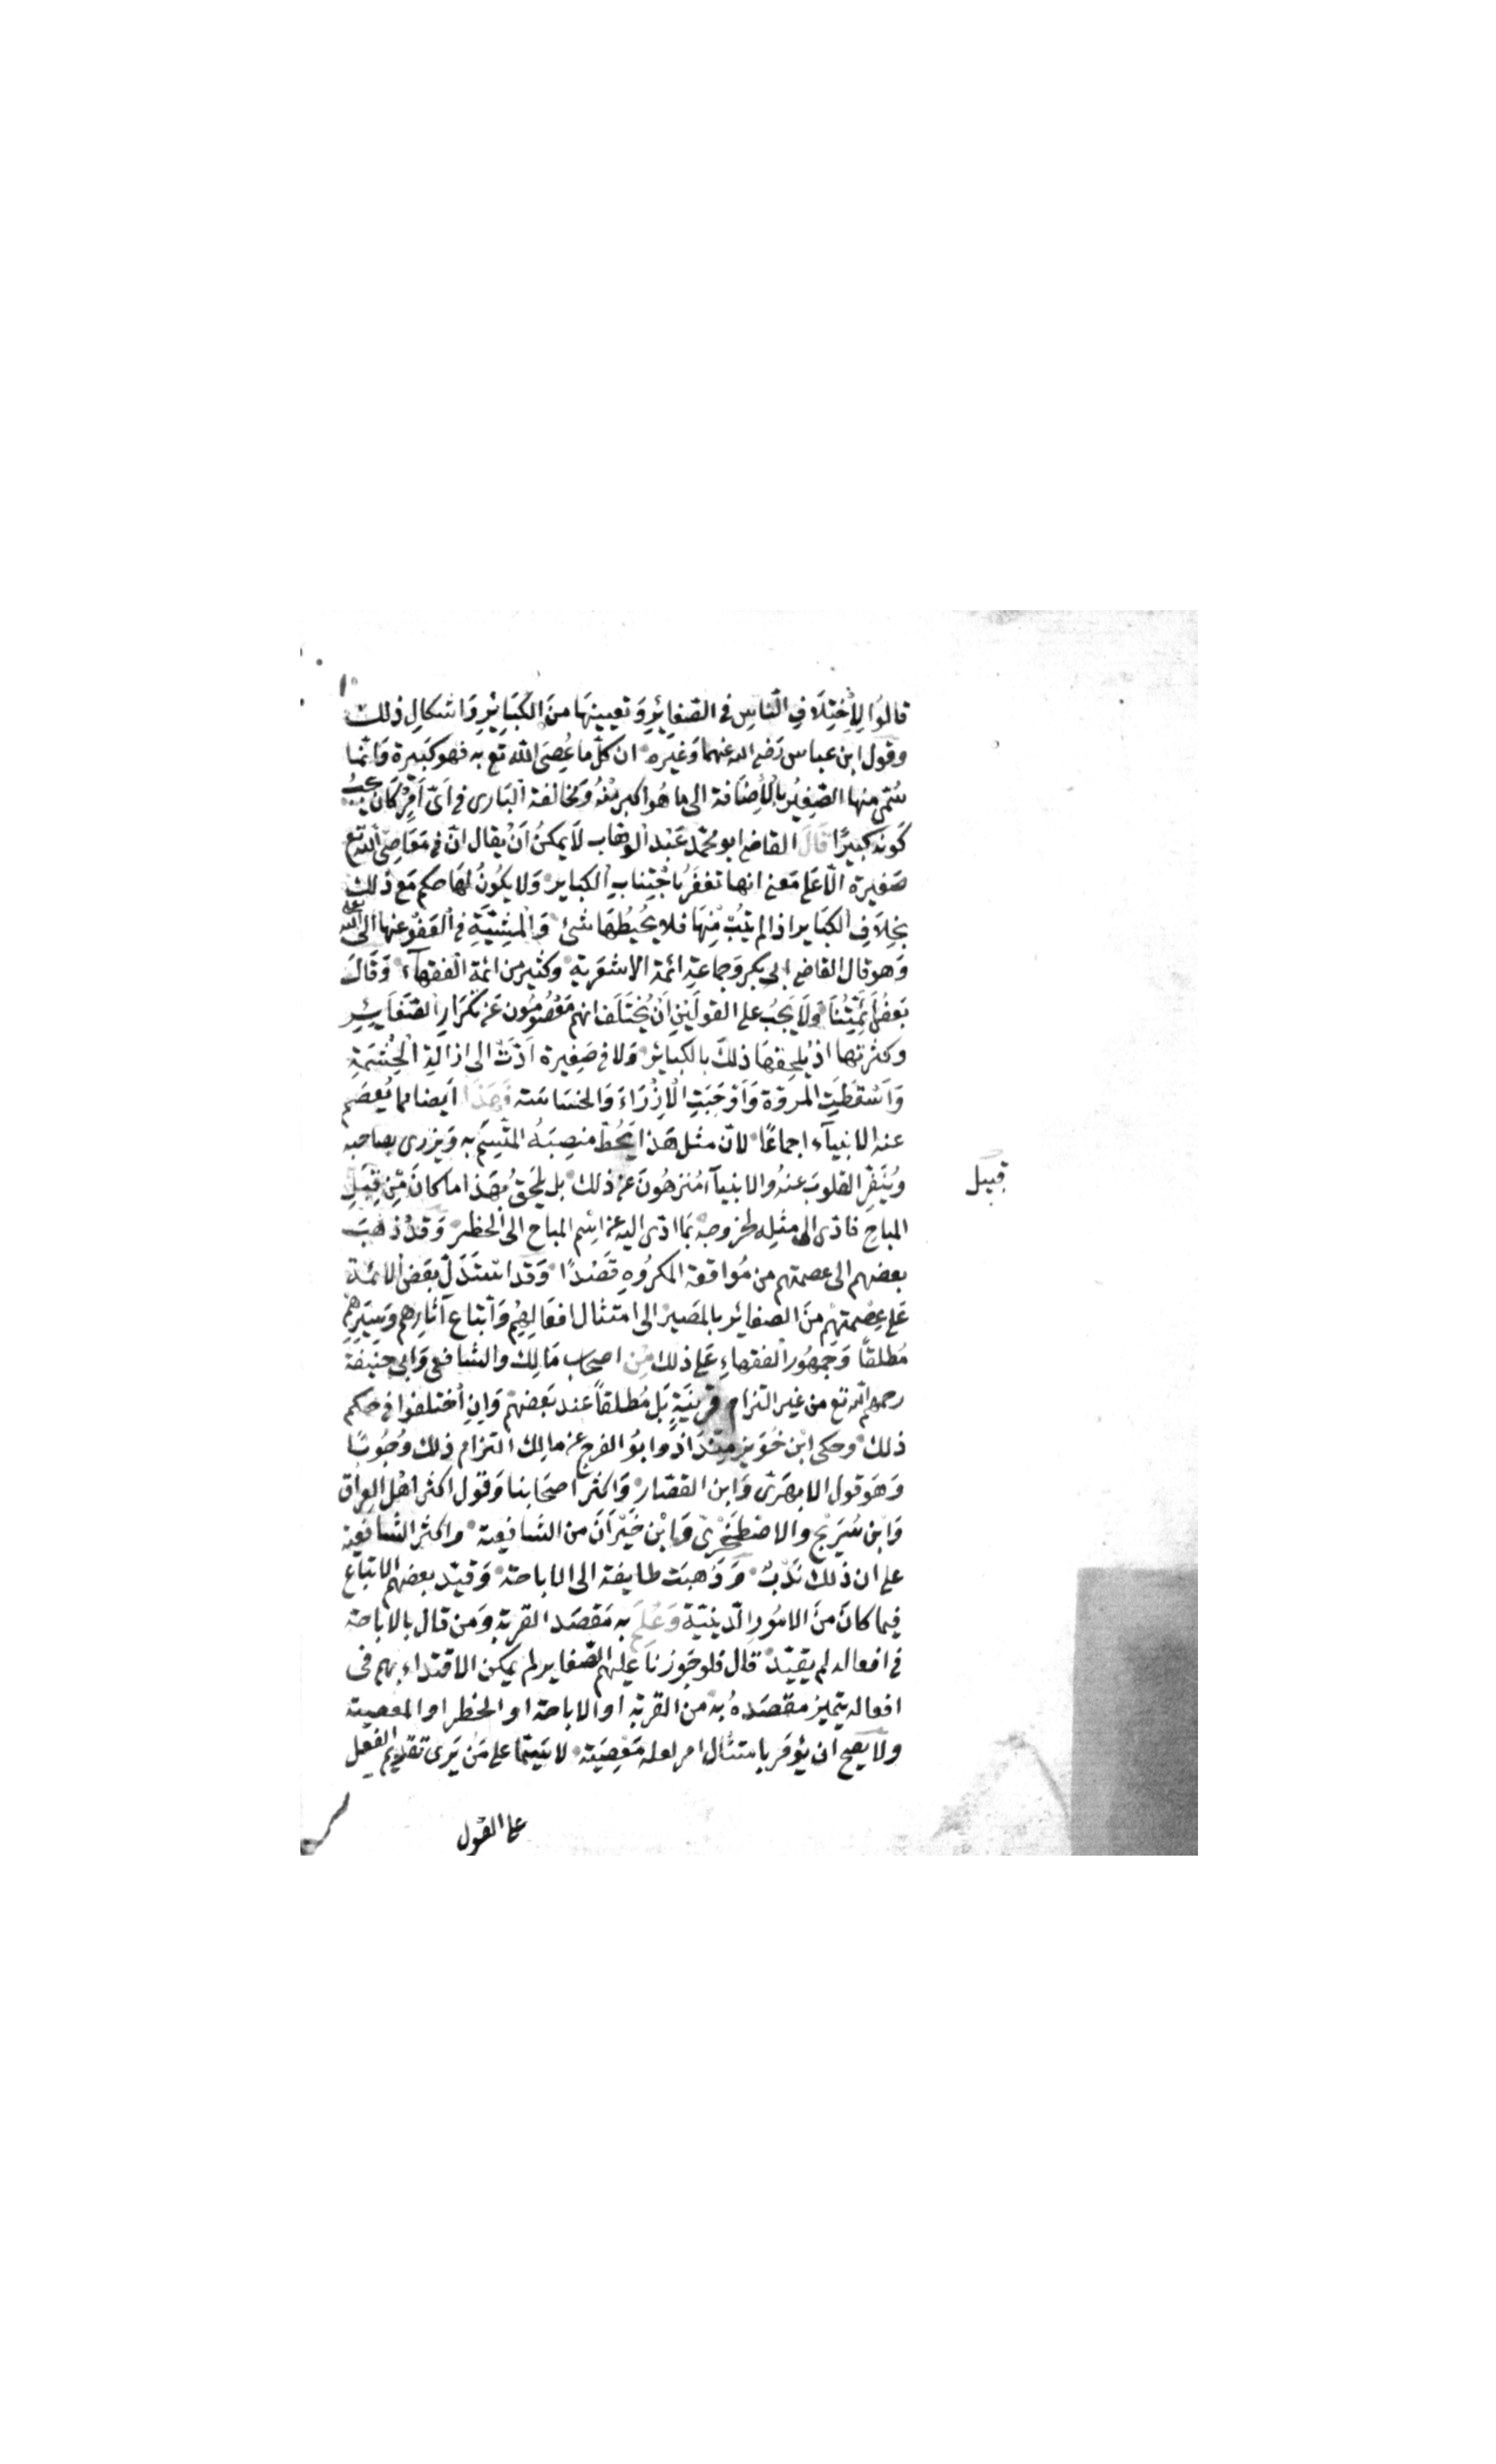 قالوا لِاخْتِلَافِ النَّاسِ فى الصَّغَايِرِ وَتعيينهَا منَ الكبَايِرِ وَاشكالِ ذلك
وقول ابن عباس رَضى الله عنهما وَغيره ان كلّ ما عُصِىَ اللّه تع به فهو كبَيرة وَانّما
سُمّى منها الصّغِيُر بِالْاِضَافة الى ما هُوَ اكبر مْنهُ وَمخالفة البَارى فى اَىّ اَمْرٍ كَان يجبُ
كَونه كبَيرًا قَالَ القاضى ابو محمّد عَبْد الوهّاب لَا يمكنُ اَنْ يقال انّ فى مَعَاصِى اللّه تع
صَغيرة الّا عَلى مَعنى انها تغفَرُ بِاجْتِنابِ الكبايرِ وَلا يكُونُ لهَا حكم مَع ذلك
بخِلَافِ الكبَاير اذ لم يتُبْ مِنهَا فلا يُحْبِطُهَا شئ وَالمْشِيّةِ فى العَفْوِ عنها الى اللّه تعلى
وَهو قال القاضى ابى بكر وَجماعةِ ائمة الاشعَرية وكثير من ائمة الفقهآء وَقَالَ
بَعضُ اَئمّتِنَا وَلَا يَجبُ على القولَيْنِ اَنْ يُخْتَلَف انهم مَعْصُومُون عَن تكْرَارِ الصَّغَايِرِ
وكثرتها اذ يُلحِقهَا ذلكَ بالكبائر وَلا فى صَغِيرة اَدّتْ الى ازالَةِ الحِشمَةِ
وَاَسْقطَتِ المروّة وَاَوْجَبَتِ الْاِزْرَاءَ وَالخسَاسَة فَهَذَا اَيضا مما يُعصَم
عنه الانبيآء اجماعًا لانّ مثل هَذا يَحُطّ منصِبَهُ المتّسِمِ به وَيزرى بصاحبه
ويُنَفِرُ القلوبَ عنهُ والانبيآء مُنزهُونَ عن ذلك بل يَلحَقُ بهَذا ما كانَ مِنْ قِبَلِ
قبيل
المباح فادّى الى مثلِه لخروجه بمَا ادّى اليه عن اسْم المباح الى الحظر وَقَدْ ذهَبَ
بعضهم الى عصمتهم من مُواقعَة المكرُوهِ قصْدًا وَقَد استدَلّ بعَض الائمّة
عَلى عِصْمتهمْ منَ الصغائر بالمَصير الى امتثال افعَالِهِمْ وَاتباع آثارِهم وَسِيَرِهمْ
مُطلقًا وَجمهُور الفقهاءِ عَلى ذلك مِنْ اصحاب مَالِك والشافعى وَابى حنيفَةَ
رحمهم اللّه تع من غير التزام قرينَةٍ بَل مُطلقاً عند بَعضهمْ وَاِنِ اختلفوا فى حكم
ذلك وحكى ابْن خُوَيز منْدَاذ وابوُ الفرج عن مالِك التزام ذلك وُجُوبًا
وَهَو قول الابهَرىّ وَابن القصّار وَاكثر اصحَابنا وَقول اكثر اهْل العراق
وَابْن سُرَيْج والاصْطَخْرىّ وَابْن خَيْرَانَ من الشّافعية واكثر الشّافعية
على ان ذلك نَدْبٌ وَذَهبَت طايفة الى الاباحة وَقيّد بعضهم الاتباع
فيما كانَ منَ الامُورِ الدّينيّة وَعُلِمَ به مَقصَد القربة وَمن قال بالاباحة
فى افعاله لم يقيّد قال فلو جَوزنا عليهم الصّغايرَ لم يمكن الاقتداء بهم فى
افعاله يتميز مقصَدهُ به من القربة او الاباحة او الحظر او المعصية
ولا يصحّ ان يُؤمَر بامتثال امر لعله مَعْصِيَة لا سَيّما على مَنْ يَرى تقديم الفعل
على القول